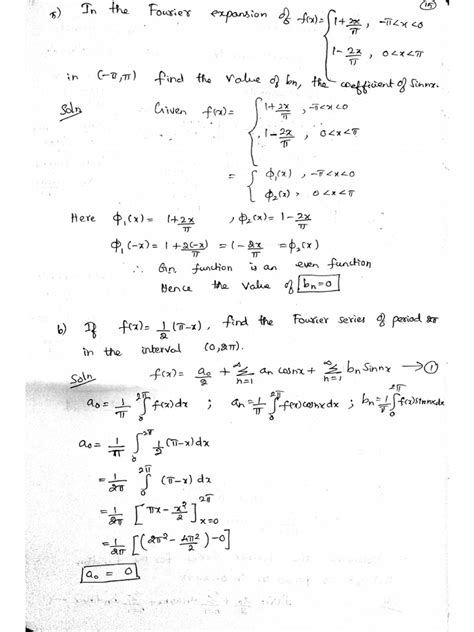 (15)
5) In the Fourier expansion of f(x) = { 1 + 2x/π , -π<x<0
1 - 2x/π , 0<x<π
in (-π,π) find the value of bn, the coefficient of Sinnx.
Soln Given f(x) = { 1 + 2x/π , -π<x<0
1 - 2x/π , 0<x<π
= { φ₁(x) , -π<x<0
φ₂(x) , 0<x<π
Here φ₁(x) = 1+2x/π , φ₂(x) = 1 - 2x/π
φ₁(-x) = 1 + 2(-x)/π = 1 - 2x/π = φ₂(x)
∴ Gn function is an even function
Hence the value of bn=0
6) If f(x) = 1/2 (π-x) , find the Fourier series of period 2π
in the interval (0,2π).
Soln f(x) = a₀/2 + ∞Σn=1 an cosnx + ∞Σn=1 bn Sinnx → ①
a₀ = 1/π ∫₀^2π f(x) dx ; an = 1/π ∫₀^2π f(x) cosnx dx ; bn = 1/π ∫₀^2π f(x) sinnx dx
a₀ = 1/π ∫₀^2π 1/2 (π-x) dx
= 1/2π ∫₀^2π (π-x) dx
= 1/2π [πx - x²/2]^2π x=0
= 1/2π [(2π² - 4π²/2) - 0]
a₀ = 0